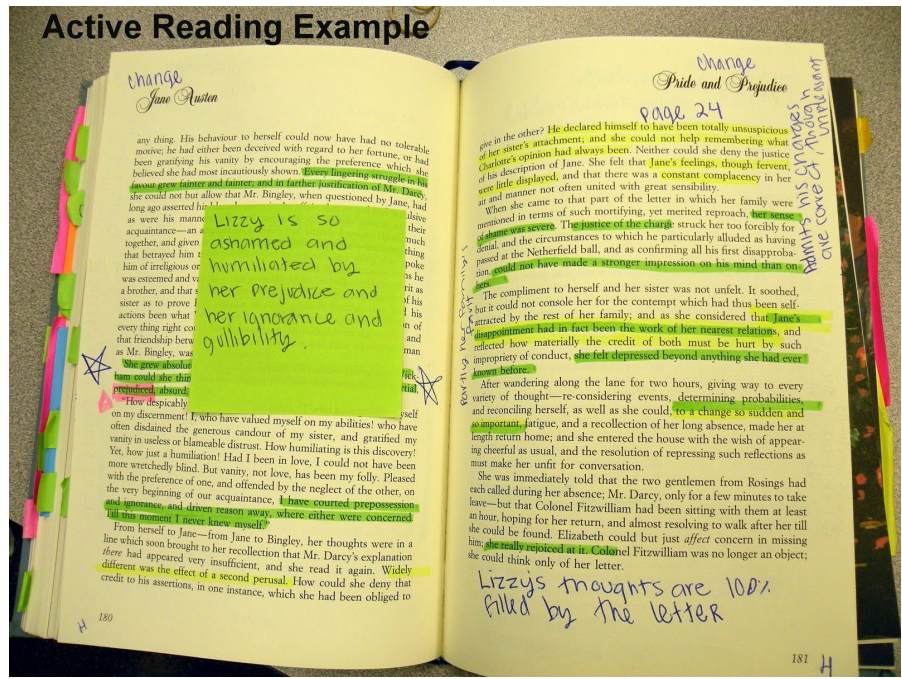 Active Reading Example
change
Jane Austen
any thing. His behaviour to herself could now have had no tolerable
motive; he had either been deceived with regard to her fortune, or had
been gratifying his vanity by encouraging the preference which she
believed she had most incautiously shown. Every lingering struggle in his
favour grew fainter and fainter; and in farther justification of Mr. Darcy,
she could not but allow that Mr. Bingley, when questioned by Jane, had
long ago asserted his
as were his manne
acquaintance—an a
together, and given
that betrayed him t
him of irreligious or
was esteemed and va
a brother, and that s
sister as to prove h
actions been what
every thing right co
that friendship betw
as Mr. Bingley, was
She grew absolut
ham could she thin
prejudiced, absurd.
Lizzy is so
ashamed and
humiliated by
her prejudice and
her ignorance and
gullibility.
"How despicably
on my discernment! I, who have valued myself on my abilities! who have
often disdained the generous candour of my sister, and gratified my
vanity in useless or blameable distrust. How humiliating is this discovery!
Yet, how just a humiliation! Had I been in love, I could not have been
more wretchedly blind. But vanity, not love, has been my folly. Pleased
with the preference of one, and offended by the neglect of the other, on
the very beginning of our acquaintance, I have courted prepossession
and ignorance, and driven reason away, where either were concerned.
Till this moment I never knew myself."
From herself to Jane—from Jane to Bingley, her thoughts were in a
line which soon brought to her recollection that Mr. Darcy's explanation
there had appeared very insufficient, and she read it again. Widely
different was the effect of a second perusal. How could she deny that
credit to his assertions, in one instance, which she had been obliged to
180
H
change
Pride and Prejudice
page 24
give in the other? He declared himself to have been totally unsuspicious
of her sister's attachment; and she could not help remembering what
Charlotte's opinion had always been. Neither could she deny the justice
of his description of Jane. She felt that Jane's feelings, though fervent,
were little displayed, and that there was a constant complacency in her
air and manner not often united with great sensibility.
When she came to that part of the letter in which her family were
mentioned in terms of such mortifying, yet merited reproach, her sense
of shame was severe. The justice of the charge struck her too forcibly for
denial, and the circumstances to which he particularly alluded as having
passed at the Netherfield ball, and as confirming all his first disapproba-
tion, could not have made a stronger impression on his mind than on
hers.
The compliment to herself and her sister was not unfelt. It soothed,
but it could not console her for the contempt which had thus been self-
attracted by the rest of her family; and as she considered that Jane's
disappointment had in fact been the work of her nearest relations, and
reflected how materially the credit of both must be hurt by such
impropriety of conduct, she felt depressed beyond anything she had ever
known before.
After wandering along the lane for two hours, giving way to every
variety of thought—re-considering events, determining probabilities,
and reconciling herself, as well as she could, to a change so sudden and
so important, fatigue, and a recollection of her long absence, made her at
length return home; and she entered the house with the wish of appear-
ing cheerful as usual, and the resolution of repressing such reflections as
must make her unfit for conversation.
She was immediately told that the two gentlemen from Rosings had
each called during her absence; Mr. Darcy, only for a few minutes to take
leave—but that Colonel Fitzwilliam had been sitting with them at least
an hour, hoping for her return, and almost resolving to walk after her till
she could be found. Elizabeth could but just affect concern in missing
him; she really rejoiced at it. Colonel Fitzwilliam was no longer an object;
she could think only of her letter.
Admits his charges
are correct though
unpleasant
partly her family's
fault
Lizzy's thoughts are 100%
filled by the letter
181
H